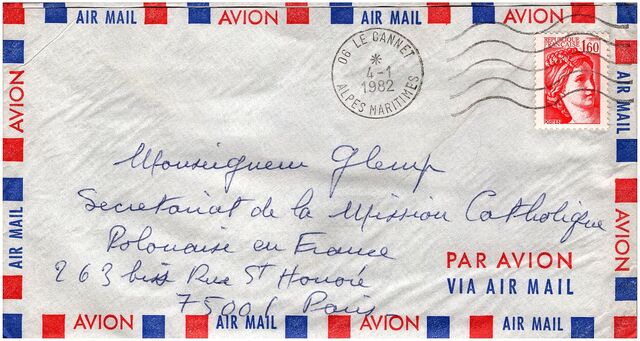 AIR MAIL AVION AIR MAIL AVION AIR MAIL
06 LE CANNET
*
4-1
1982
ALPES MARITIMES
REPUBLIQUE
FRANÇAISE
1,60
POSTES
AVION
AIR MAIL
AIR MAIL
AVION
Monseigneur Glemp
Secretariat de la Mission Catholique
Polonaise en France
263 bis Rue St Honoré
75001 Paris
PAR AVION
VIA AIR MAIL
AVION AIR MAIL AVION AIR MAIL